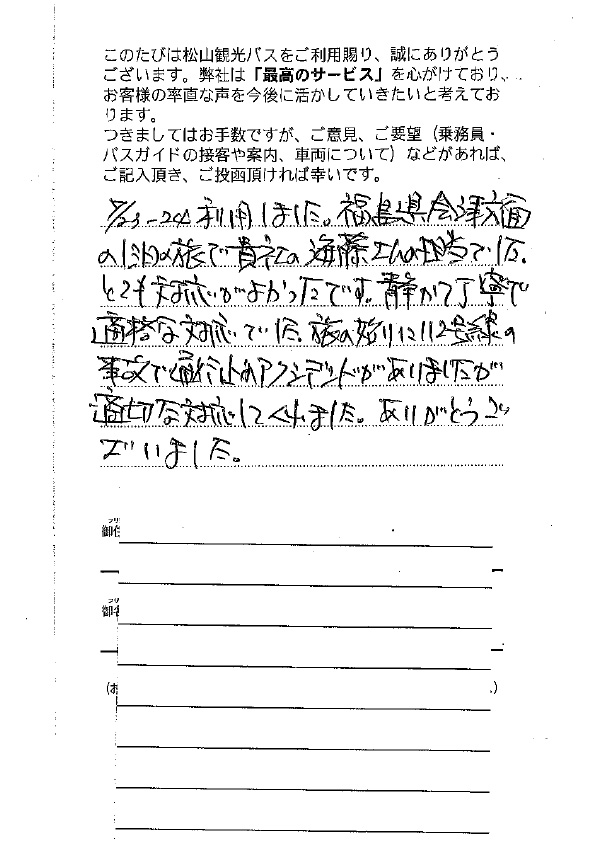 このたびは松山観光バスをご利用賜り、誠にありがとう
ございます。弊社は「最高のサービス」を心がけており、
お客様の率直な声を今後に活かしていきたいと考えてお
ります。
つきましてはお手数ですが、ご意見、ご要望（乗務員・
バスガイドの接客や案内、車両について）などがあれば、
ご記入頂き、ご投函頂ければ幸いです。
7/23-24利用しました。福島県会津方面
の1泊の旅で貴社の海藤さんの担当でした。
とても対応がよかったです。静かで丁寧で
適格な対応でした。旅の始りに112号線の
事故で通行止のアクシデントがありましたが
適切な対応してくれました。ありがとうご
ざいました。
御住
御名
(お